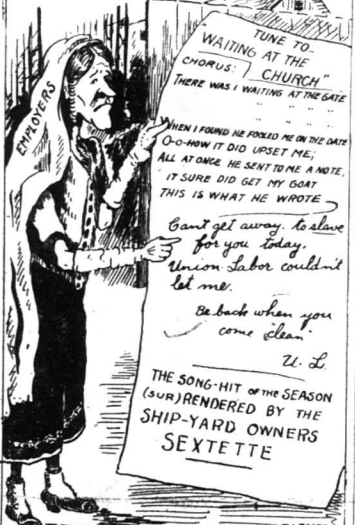 EMPLOYERS
TUNE TO-
"WAITING AT THE
CHURCH"
CHORUS:
THERE WAS I WAITING AT THE GATE
" " " "
" " " "
WHEN I FOUND HE FOOLED ME ON THE DATE
O-O-HOW IT DID UPSET ME;
ALL AT ONCE HE SENT TO ME A NOTE,
IT SURE DID GET MY GOAT
THIS IS WHAT HE WROTE
Can't get away. to slave
for you today.
Union Labor couldn't
let me.
Be back when you
come "clean"
U. L.
THE SONG-HIT OF THE SEASON
(SUR)RENDERED BY THE
SHIP-YARD OWNERS
SEXTETTE